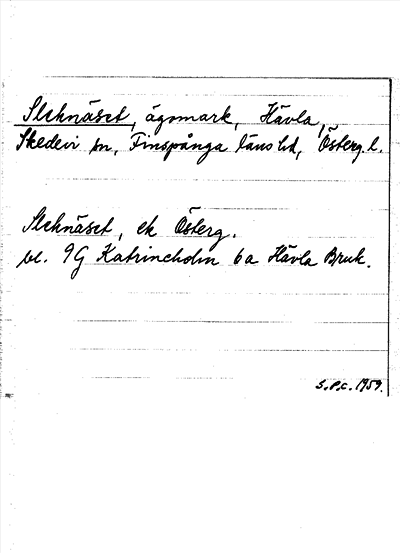 Slehnäset, ägomark, Hävla,
Skedevi sn, Finspånga läns hd, Österg. l.
Slehnäset, ek Österg.
bl. 9G Katrineholm 6a Hävla Bruk.
S.P.C. 1959.